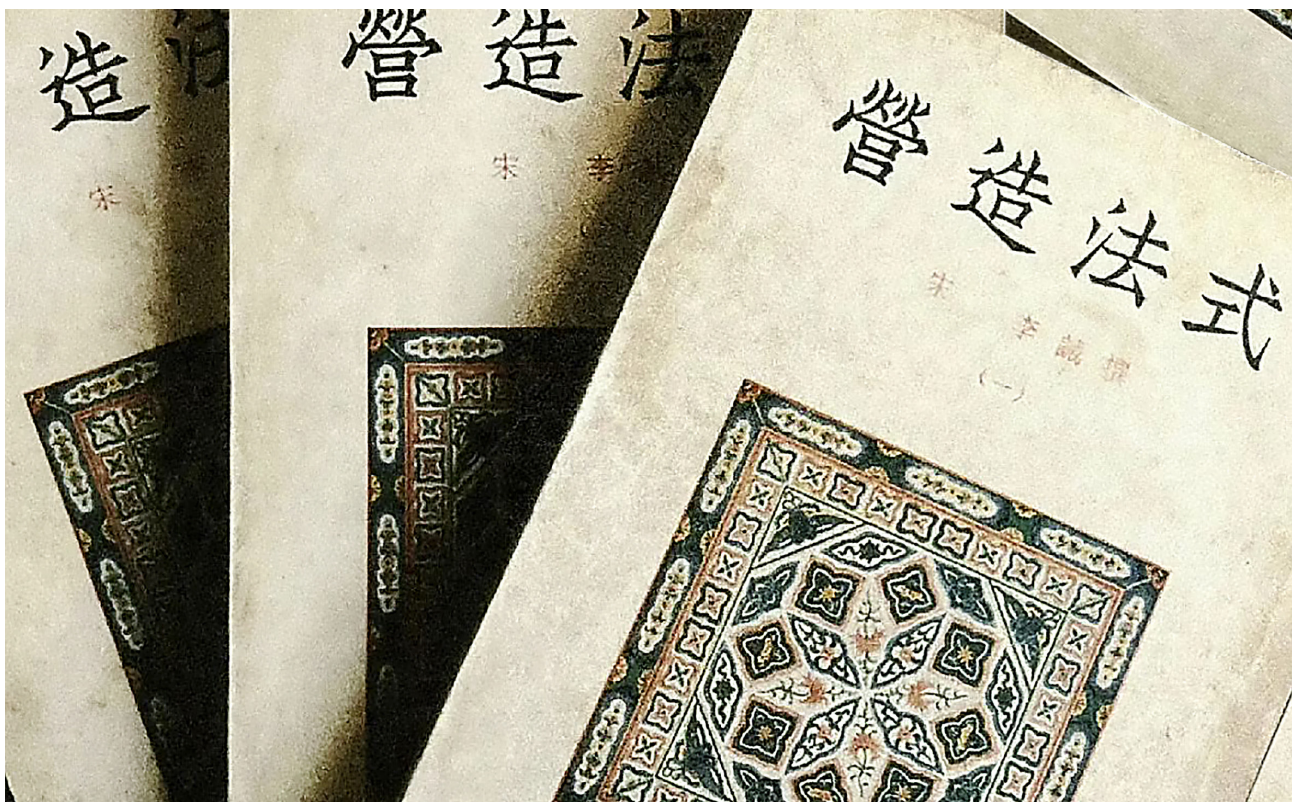 造法
宋
營造法
宋 李
營造法式
宋 李誡撰
(一)